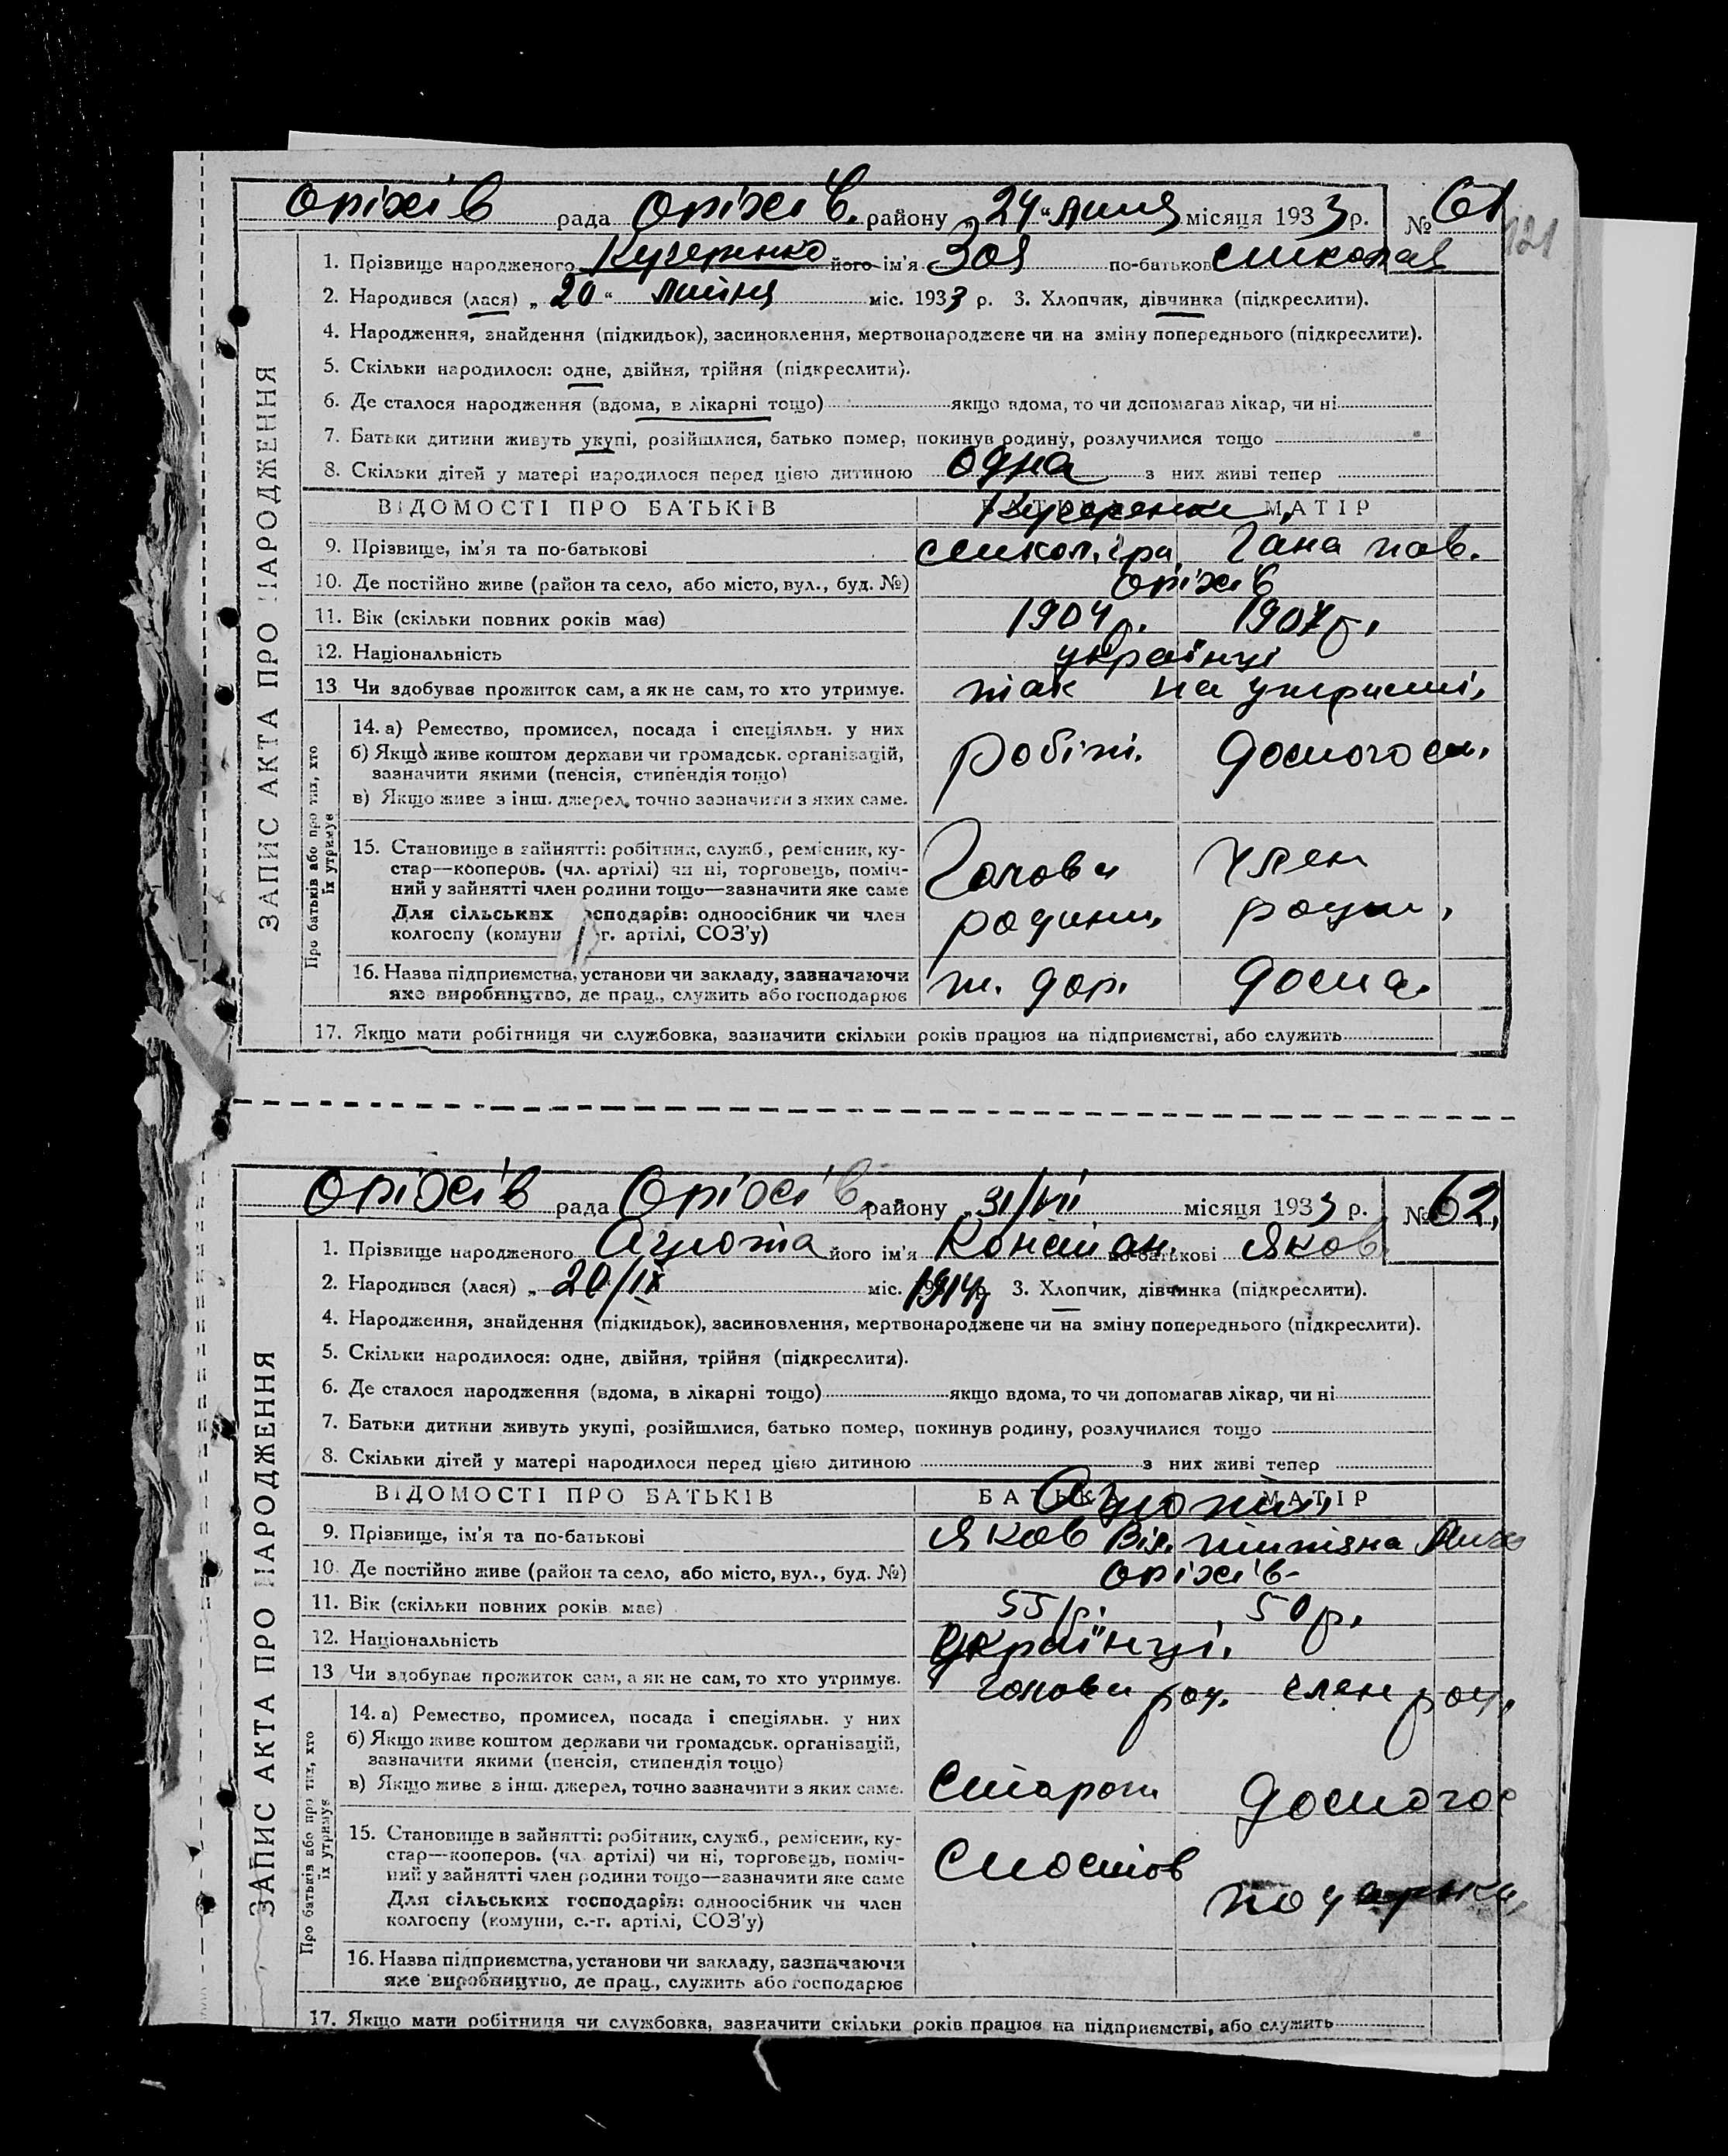 Оріхів рада Оріхів. району „24“ липня місяця 1933 р. № 61
121
1. Прізвище народженого Кучеренко його ім'я Зоя по-батькові Микола
2. Народився (лася) „20“ липня міс. 1933 р. 3. Хлопчик, дівчинка (підкреслити).
4. Народження, знайдення (підкидьок), засиновлення, мертвонароджене чи на зміну попереднього (підкреслити).
5. Скільки народилося: одне, двійня, трійня (підкреслити).
6. Де сталося народження (вдома, в лікарні тощо) якщо вдома, то чи допомагав лікар, чи ні
7. Батьки дитини живуть укупі, розійшлися, батько помер, покинув родину, розлучилися тощо
8. Скільки дітей у матері народилося перед цією дитиною одна з них живі тепер
ЗАПИС АКТА ПРО НАРОДЖЕННЯ
ВІДОМОСТІ ПРО БАТЬКІВ МАТІР
9. Прізвище, ім'я та по-батькові Микол. Гана Пав.
10. Де постійно живе (район та село, або місто, вул., буд. №) Оріхів
11. Вік (скільки повних років має) 1904 р. 1907 р.
12. Національність українці
13 Чи здобуває прожиток сам, а як не сам, то хто утримує. так на утриманні.
Про батьків або про тих, хто їх утримує
14. а) Ремество, промисел, посада і спеціяльн. у них
б) Якщо живе коштом держави чи громадськ. організацій,
зазначити якими (пенсія, стипендія тощо) робітн. домогосп.
в) Якщо живе з інш. джерел, точно зазначити з яких саме.
15. Становище в зайнятті: робітник, служб., ремісник, ку-
стар—кооперов. (чл. артілі) чи ні, торговець, поміч- Голова член
ний у зайнятті член родини тощо—зазначити яке саме
Для сільських господарів: одноосібник чи член родини, родин,
колгоспу (комуни с.-г. артілі, СОЗ'у)
16. Назва підприємства, установи чи закладу, зазначаючи дор. дома.
яке виробництво, де прац., служить або господарює
17. Якщо мати робітниця чи службовка, зазначити скільки років працює на підприємстві, або служить
Оріхів рада Оріхів району „31/VII місяця 1933 р. № 62.
1. Прізвище народженого його ім'я Констан. по-батькові Яков.
2. Народився (лася) „20/IX міс. 1914 р. 3. Хлопчик, дівчинка (підкреслити).
4. Народження, знайдення (підкидьок), засиновлення, мертвонароджене чи на зміну попереднього (підкреслити).
5. Скільки народилося: одне, двійня, трійня (підкреслити).
6. Де сталося народження (вдома, в лікарні тощо) якщо вдома, то чи допомагав лікар, чи ні
7. Батьки дитини живуть укупі, розійшлися, батько помер, покинув родину, розлучилися тощо
8. Скільки дітей у матері народилося перед цією дитиною з них живі тепер
ЗАПИС АКТА ПРО НАРОДЖЕННЯ
ВІДОМОСТІ ПРО БАТЬКІВ БАТЬКА МАТІР
9. Прізвище, ім'я та по-батькові Яков
10. Де постійно живе (район та село, або місто, вул., буд. №) Оріхів
11. Вік (скільки повних років має) 55 р. 50 р.
12. Національність Українці.
13 Чи здобуває прожиток сам, а як не сам, то хто утримує. голова род. член род.
Про батьків або про тих, хто їх утримує
14. а) Ремество, промисел, посада і спеціяльн. у них
б) Якщо живе коштом держави чи громадськ. організацій,
зазначити якими (пенсія, стипендія тощо)
в) Якщо живе з інш. джерел, точно зазначити з яких саме. домогос
15. Становище в зайнятті: робітник, служб., ремісник, ку-
стар—кооперов. (чл. артілі) чи ні, торговець, поміч-
ний у зайнятті член родини тощо—зазначити яке саме
Для сільських господарів: одноосібник чи член
колгоспу (комуни, с.-г. артілі, СОЗ'у)
16. Назва підприємства, установи чи закладу, зазначаючи
яке виробництво, де прац., служить або господарює
17. Якщо мати робітниця чи службовка, зазначити скільки років працює на підприємстві, або служить